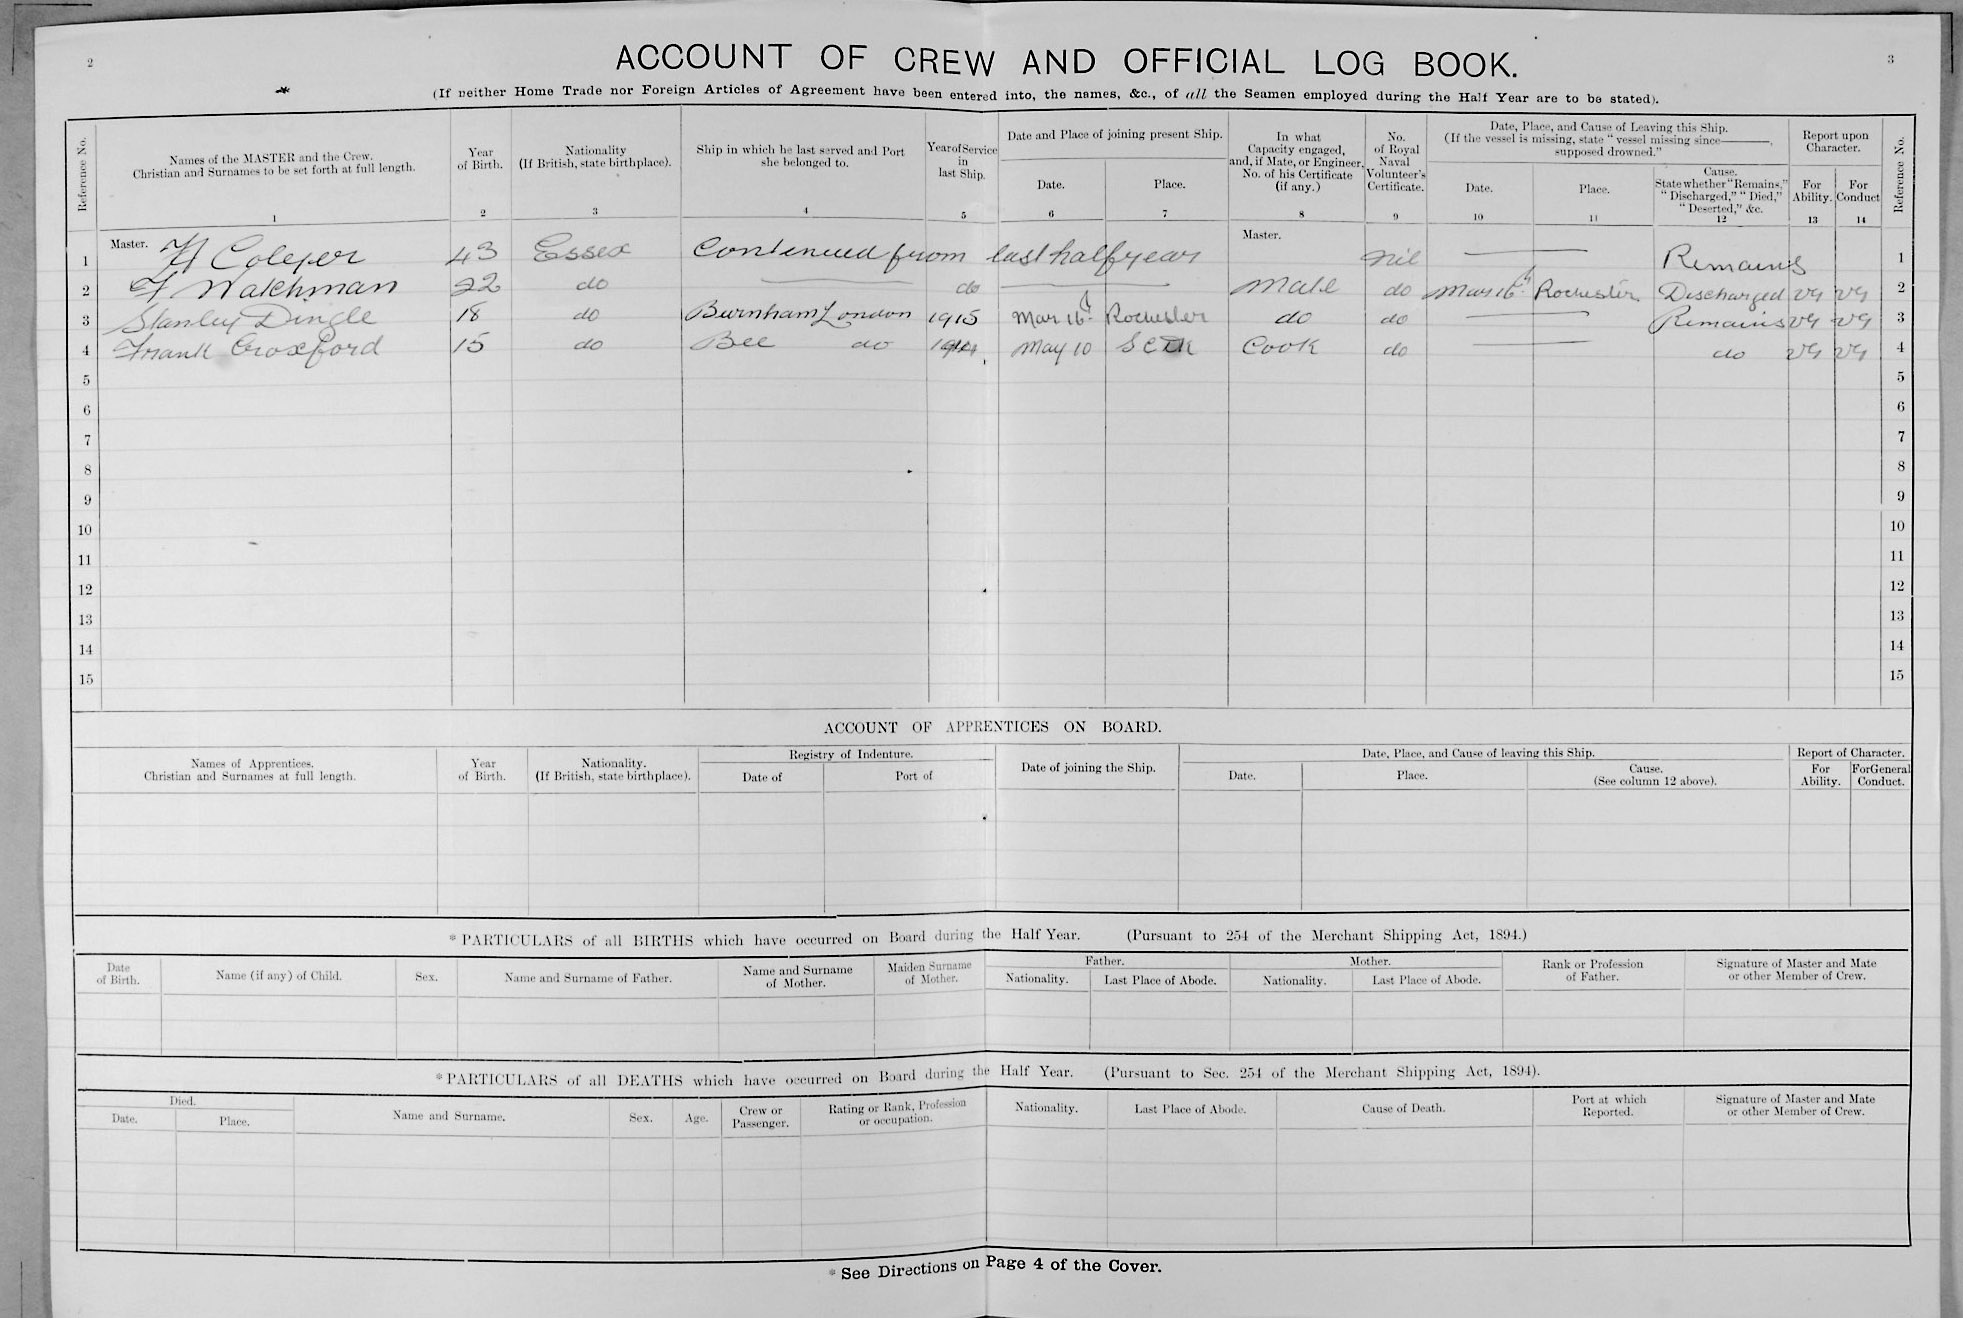 2
3
ACCOUNT OF CREW AND OFFICIAL LOG BOOK.
*
(If neither Home Trade nor Foreign Articles of Agreement have been entered into, the names, &c., of all the Seamen employed during the Half Year are to be stated).
Reference No.
Names of the MASTER and the Crew.
Christian and Surnames to be set forth at full length.
1
Year
of Birth.
2
Nationality
(If British, state birthplace).
3
Ship in which he last served and Port
she belonged to.
4
Year of Service
in
last Ship.
5
Date and Place of joining present Ship.
Date.
6
Place.
7
In what
Capacity engaged,
and, if Mate, or Engineer,
No. of his Certificate
(if any.)
8
No.
of Royal
Naval
Volunteer's
Certificate.
9
Date, Place, and Cause of Leaving this Ship.
(If the vessel is missing, state "vessel missing since———,
supposed drowned."
Date.
10
Place.
11
Cause.
State whether "Remains,"
"Discharged," "Died,"
"Deserted," &c.
12
Report upon
Character.
For
Ability.
13
For
Conduct
14
Reference No.
1 Master. Coleyer 43 Essex Continued from last half year Master. nil — Remains 1
2 F Watchman 22 do — do — Mate do Mar 16th Rochester Discharged VG VG 2
3 Stanley Dingle 18 do Burnham London 1915 Mar 16th Rochester do do — Remains VG VG 3
4 Frank Croxford 15 do Bee do May 10 Cook do — do VG VG 4
5 5
6 6
7 7
8 8
9 9
10 10
11 11
12 12
13 13
14 14
15 15
ACCOUNT OF APPRENTICES ON BOARD.
Names of Apprentices.
Christian and Surnames at full length.
Year
of Birth.
Nationality.
(If British, state birthplace).
Registry of Indenture.
Date of
Port of
Date of joining the Ship.
Date, Place, and Cause of leaving this Ship.
Date.
Place.
Cause.
(See column 12 above).
Report of Character.
For
Ability.
For General
Conduct.
* PARTICULARS of all BIRTHS which have occurred on Board during the Half Year. (Pursuant to 254 of the Merchant Shipping Act, 1894.)
Date
of Birth.
Name (if any) of Child.
Sex.
Name and Surname of Father.
Name and Surname
of Mother.
Maiden Surname
of Mother.
Father.
Nationality.
Last Place of Abode.
Mother.
Nationality.
Last Place of Abode.
Rank or Profession
of Father.
Signature of Master and Mate
or other Member of Crew.
* PARTICULARS of all DEATHS which have occurred on Board during the Half Year. (Pursuant to Sec. 254 of the Merchant Shipping Act, 1894).
Died.
Date.
Place.
Name and Surname.
Sex.
Age.
Crew or
Passenger.
Rating or Rank, Profession
or occupation.
Nationality.
Last Place of Abode.
Cause of Death.
Port at which
Reported.
Signature of Master and Mate
or other Member of Crew.
* See Directions on Page 4 of the Cover.